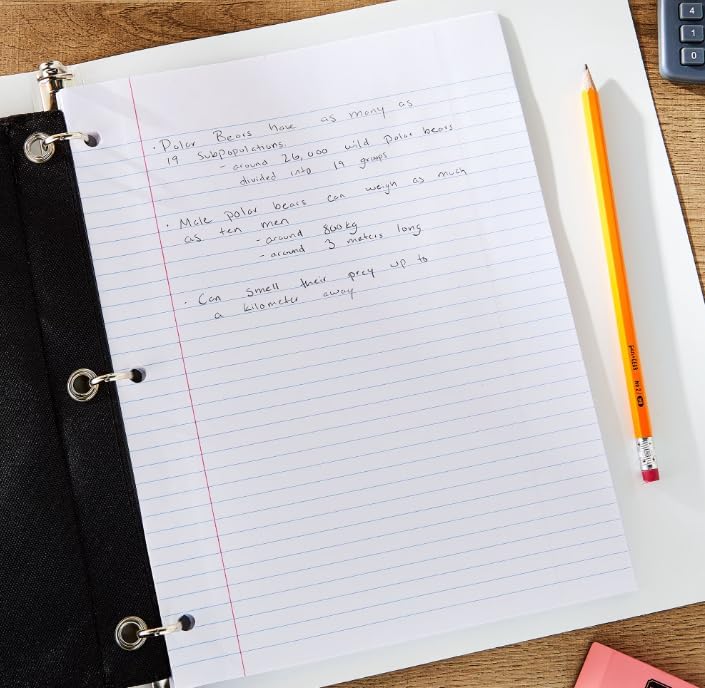 · Polar Bears have as many as
19 subpopulations.
- around 26,000 wild polar bears
divided into 19 groups
· Male polar bears can weigh as much
as ten men
- around 800kg
- around 3 meters long
· Can smell their prey up to
a kilometer away
4
1
0